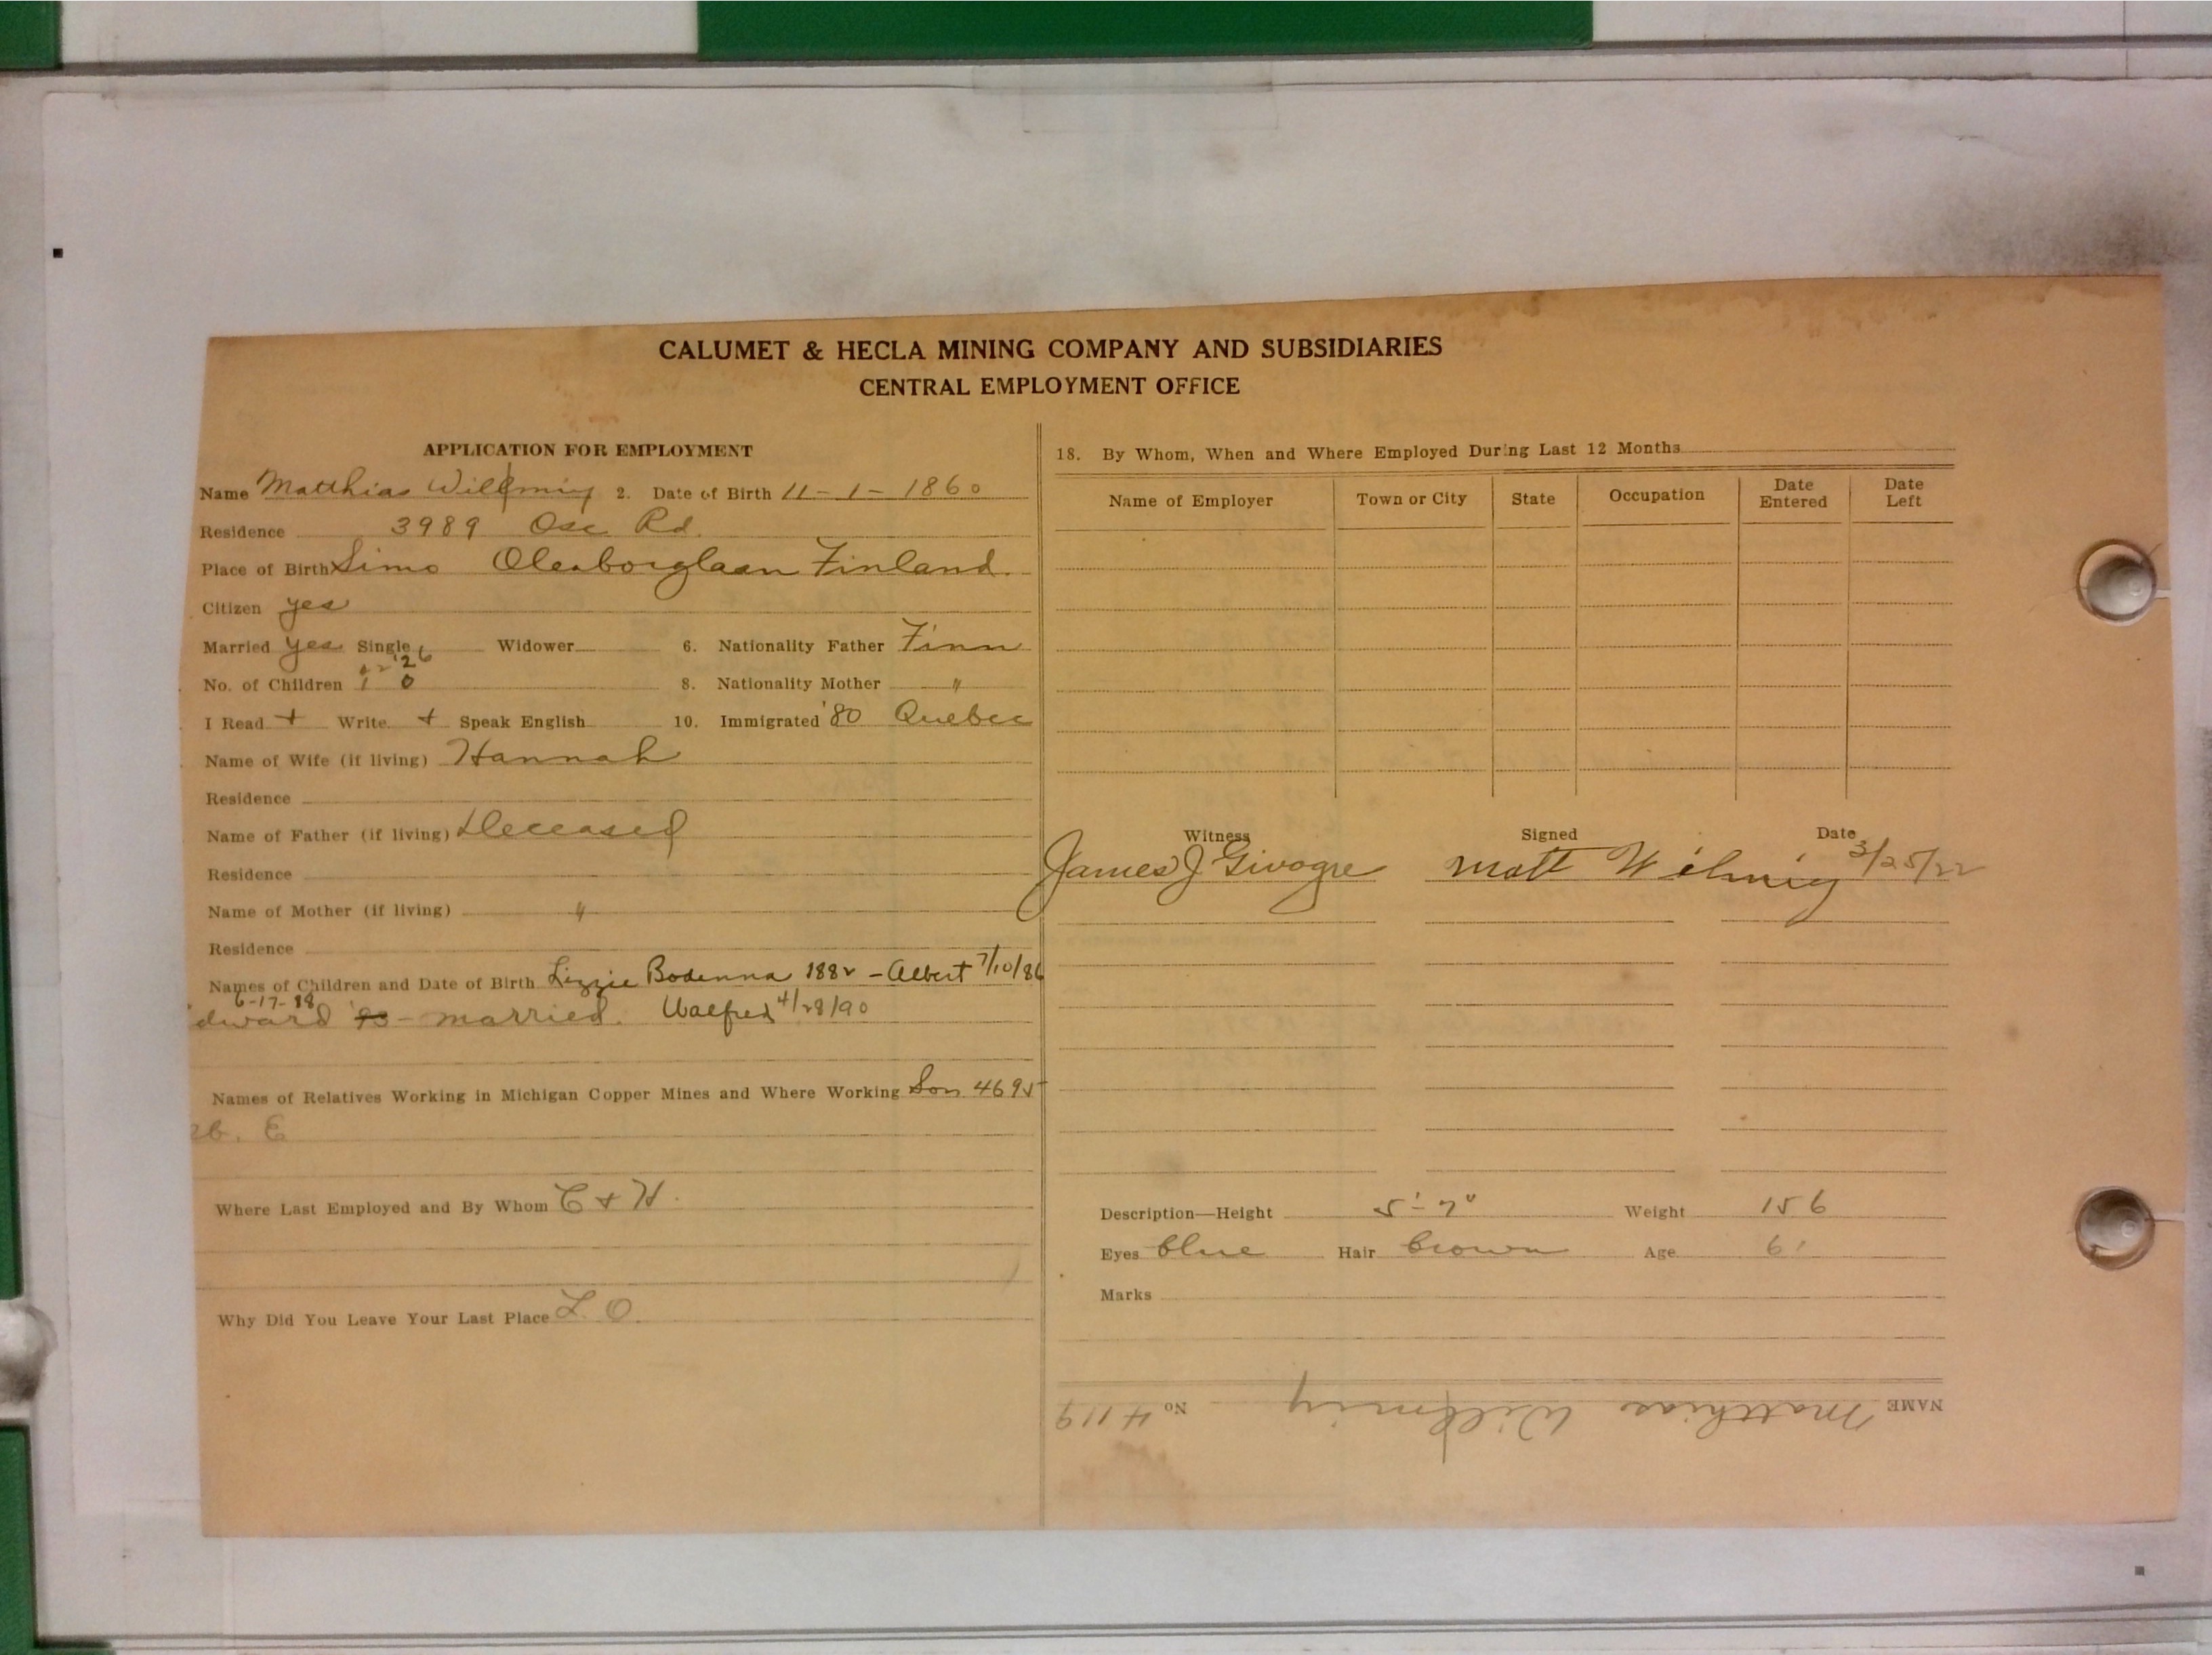 CALUMET & HECLA MINING COMPANY AND SUBSIDIARIES
CENTRAL EMPLOYMENT OFFICE
APPLICATION FOR EMPLOYMENT
Name Matthias 2. Date of Birth 11-1-1860
Residence 3989 Osc Rd.
Place of Birth Simo Finland.
Citizen yes
Married yes Single Widower 6. Nationality Father Finn
No. of Children 8. Nationality Mother "
I Read + Write + Speak English 10. Immigrated '80 Quebec
Name of Wife (if living) Hannah
Residence
Name of Father (if living) Deceased
Residence
Name of Mother (if living) "
Residence
Names of Children and Date of Birth Lizzie Bodenna 1882 - Albert 7/10/86
6-17-88
dward - married. Walfred 4/28/90
Names of Relatives Working in Michigan Copper Mines and Where Working Son 4695
Where Last Employed and By Whom C + H.
Why Did You Leave Your Last Place L.O.
18. By Whom, When and Where Employed During Last 12 Months
Name of Employer Town or City State Occupation Date Entered Date Left
Witness Signed Date
James J Givogre Matt Wilmig 3/25/22
Description—Height 5'-7" Weight 156
Eyes blue Hair brown Age 61
Marks
NAME Matthias No 4119